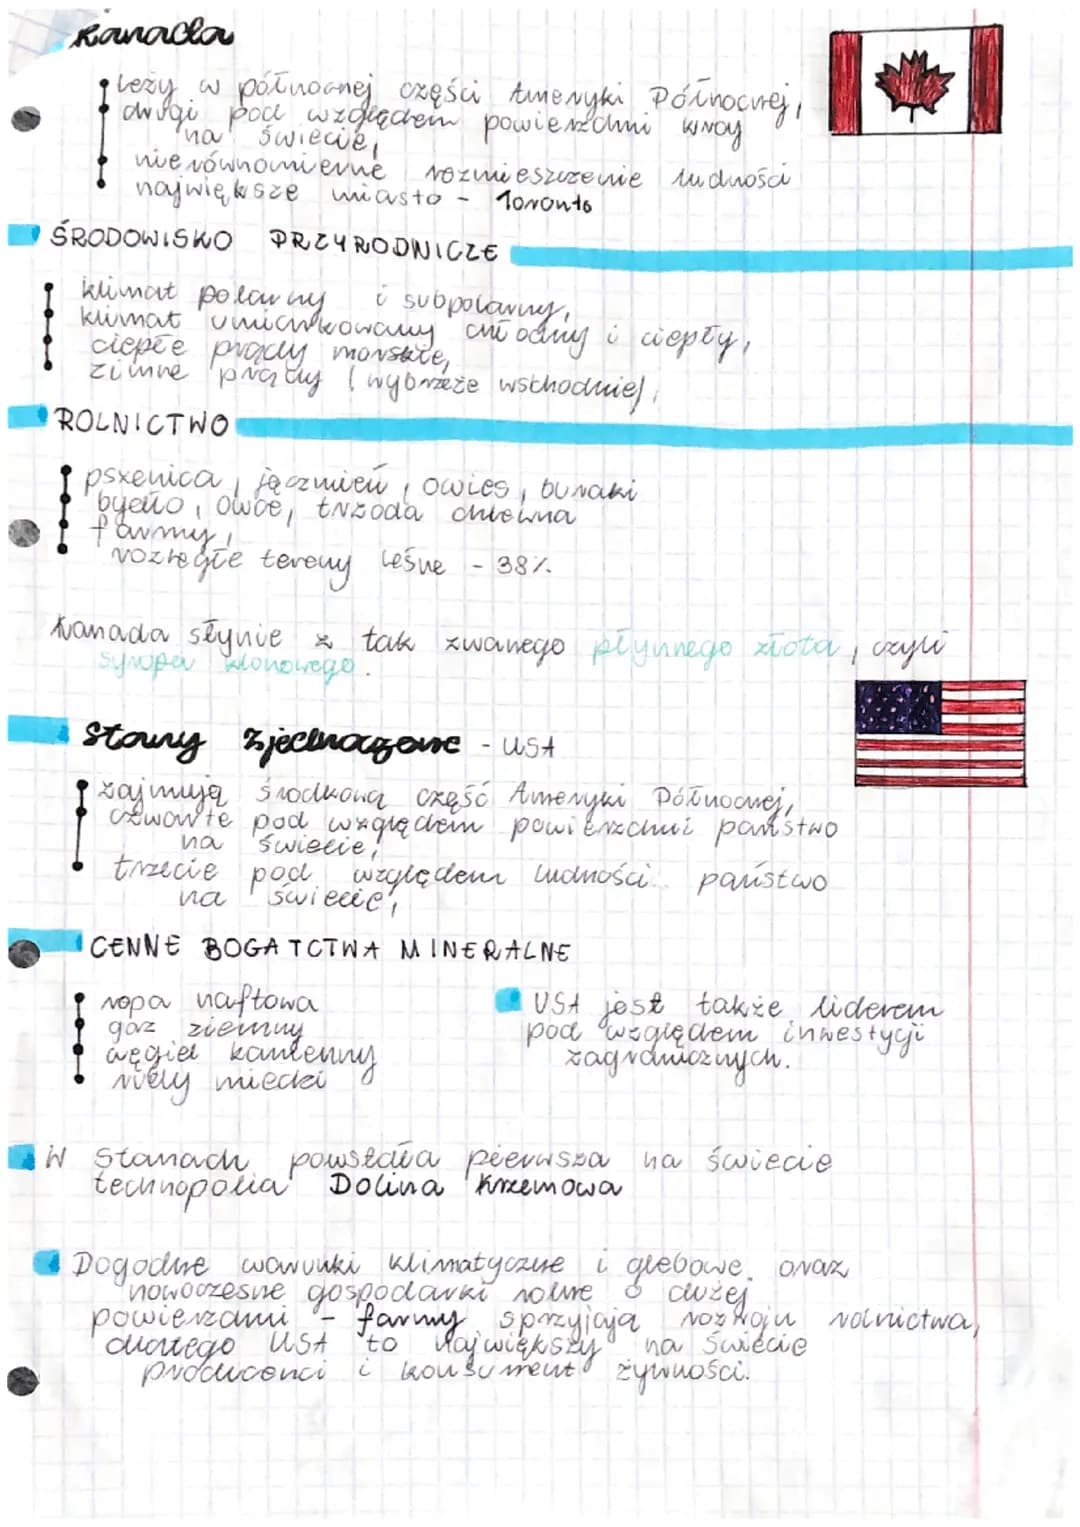 Kanada
leży w północnej części Ameryki Północnej,
drugi pod względem powierzchni kraj
na świecie,
nierównomierne rozmieszczenie ludności
największe miasto - Toronto
ŚRODOWISKO PRZYRODNICZE
klimat polarny i subpolarny,
klimat umiarkowany chłodny i ciepły,
ciepłe prądy morskie,
zimne prądy (wybrzeże wschodnie),
ROLNICTWO
psxenica, jęczmień, owies, buraki
bydło, owce, trzoda chlewna
farmy,
rozległe tereny leśne - 38%.
Kanada słynie z tak zwanego płynnego złota, czyli
syropu klonowego.
Stany Zjednoczone - USA
zajmują środkową część Ameryki Północnej,
czwarte pod względem powierzchni państwo
na świecie,
trzecie pod względem ludności państwo
na świecie,
CENNE BOGATCTWA MINERALNE
ropa naftowa
gaz ziemny
węgiel kamienny
rudy miedzi
USA jest także liderem
pod względem inwestycji
zagranicznych.
W Stanach powstała pierwsza na świecie
technopolia Dolina Krzemowa
Dogodne warunki klimatyczne i glebowe oraz
nowoczesne gospodarki rolne o dużej
powierzchni - farmy sprzyjają rozwoju rolnictwa,
dlatego USA to największy na świecie
producenci i konsument żywności.